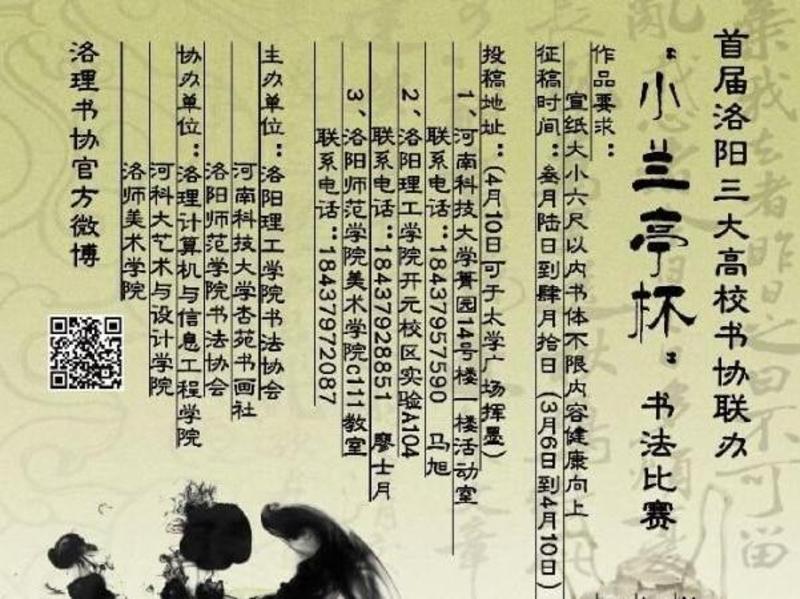 首届洛阳三大高校书协联办
“小兰亭杯”书法比赛
作品要求：
宣纸大小六尺以内书体不限内容健康向上
征稿时间：叁月陆日到肆月拾日（3月6日到4月10日）
投稿地址：（4月10日可于太学广场挥墨）
1、河南科技大学菁园14号楼一楼活动室
联系电话：18437957590 马旭
2、洛阳理工学院开元校区实验A104
联系电话：18437928851 廖士月
3、洛阳师范学院美术学院c111教室
联系电话：18437972087
主办单位：洛阳理工学院书法协会
河南科技大学杏苑书画社
洛阳师范学院书法协会
协办单位：洛理计算机与信息工程学院
河科大艺术与设计学院
洛师美术学院
洛理书协官方微博